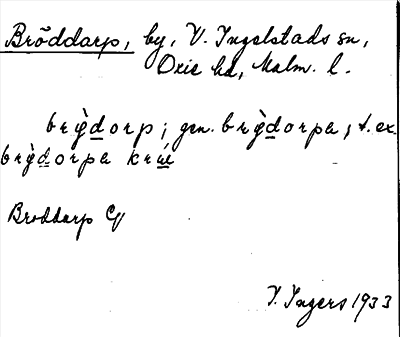 Bröddarp, by, V. Ingelstads sn,
Oxie hd, Malm. l.
brỳdorp; gen. brỳdorpa, t. ex.
brỳdorpa
Broddarp
I. Ingers 1933